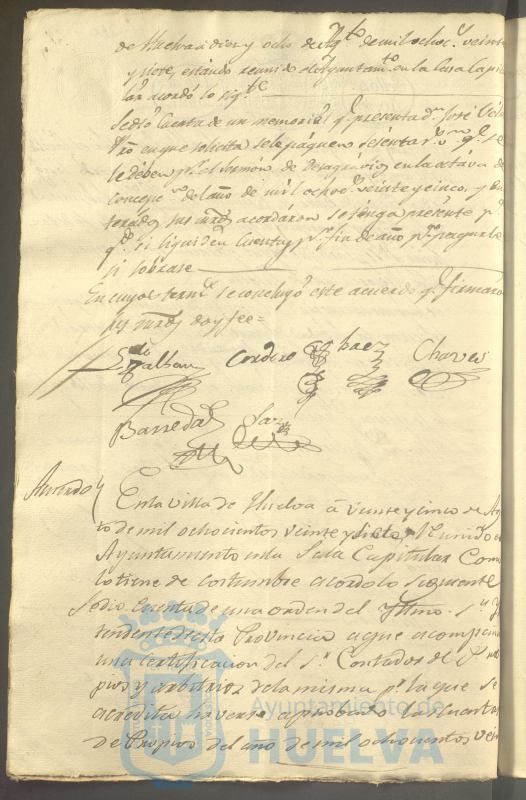 de Huelva a diez y ocho de Agto de mil ochocs veinte
y siete, estando reunido el Ayuntamto en la Casa Capitu
lar acordó lo sigte
Se dio cuenta de un memorial q presenta dn José
en que solicita se le paguen sesenta rs vn q se
le deben pr el sermón de Desagravios en la octava de
Concepcn del año de mil ochoc veinte y cinco, y en
terados, sus mrds acordaron se tenga presente pa
qdo si liquiden cuentas pr fin de año pa pagarle
si sobrase
En cuyos terms se concluyó este acuerdo q firmaron
sus mrds doy fee =
Galban Cordero Baez Chaves
Barreda
Acuerdo
En la Villa de Huelva á veinte y cinco de Ag
to de mil ochocientos veinte y siete, Reunido el
Ayuntamiento en la Sala Capitular Como
lo tiene de costumbre acordó lo siguiente
Se dio Cuenta de una orden del Yltmo Sr Yn
tendente de esta Provincia a que acompaña
una certificacion del Sr Contador de Pro
pios y arbitrios de la misma pr la que se
acredita haverse aprobado las Cuentas
de Propios del año de mil ochocientos vein
Ayuntamiento de
HUELVA